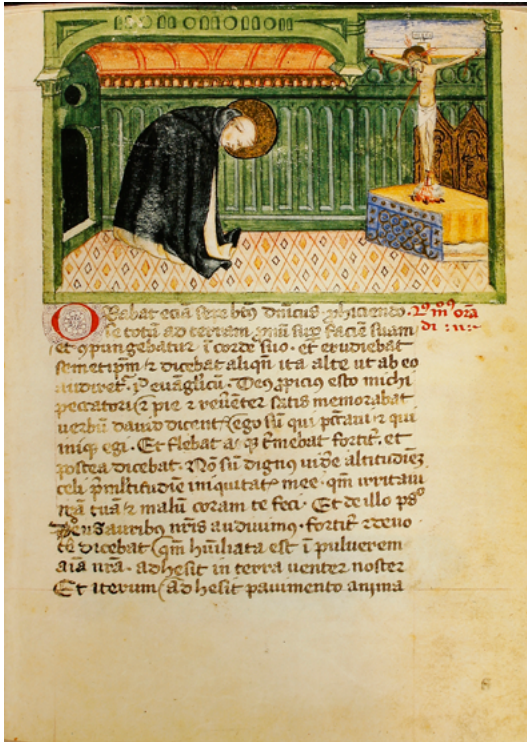 Orabat ecia sepe btus dnicus phiciendo
se totu ad terram pnu sup faciem suam
et opungebatur i corde suo · et erudiebat
semetipm et dicebat aliqn ita alte ut ab eo
audiret i evagliu · Deus ppicius esto michi
peccatori et pie et reverenter satis memorabat
verbu david dicent ego su qui pccavi et qui
iniq egi · Et flebat ac fremebat fortit · et
postea dicebat · No su dignus videre altitudiez
celi p multitudie iniquitatis mee · qm irritavi
ira tua et malu coram te feci · Et de illo ps
Deus auribus nris audivimus · fortit et devo
te dicebat qm humiliata est i pulverem
aia nra · adhesit in terra venter noster
Et iterum adhesit pavimento anima
di : ii :